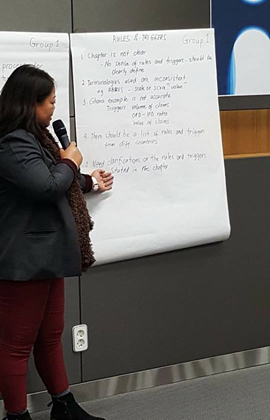 Group 1
RULES & TRIGGERS Group 1
1. Chapter is not clear
- No sense of rules and triggers - should be
clearly define
2. Terminologies used are inconsistent
3. Ghana example is not accurate
Triggers volume of claims
value of claims
4. There should be a list of rules and triggers
from diff countries
5. Need clarifications on the rules and triggers
stated in the chapter